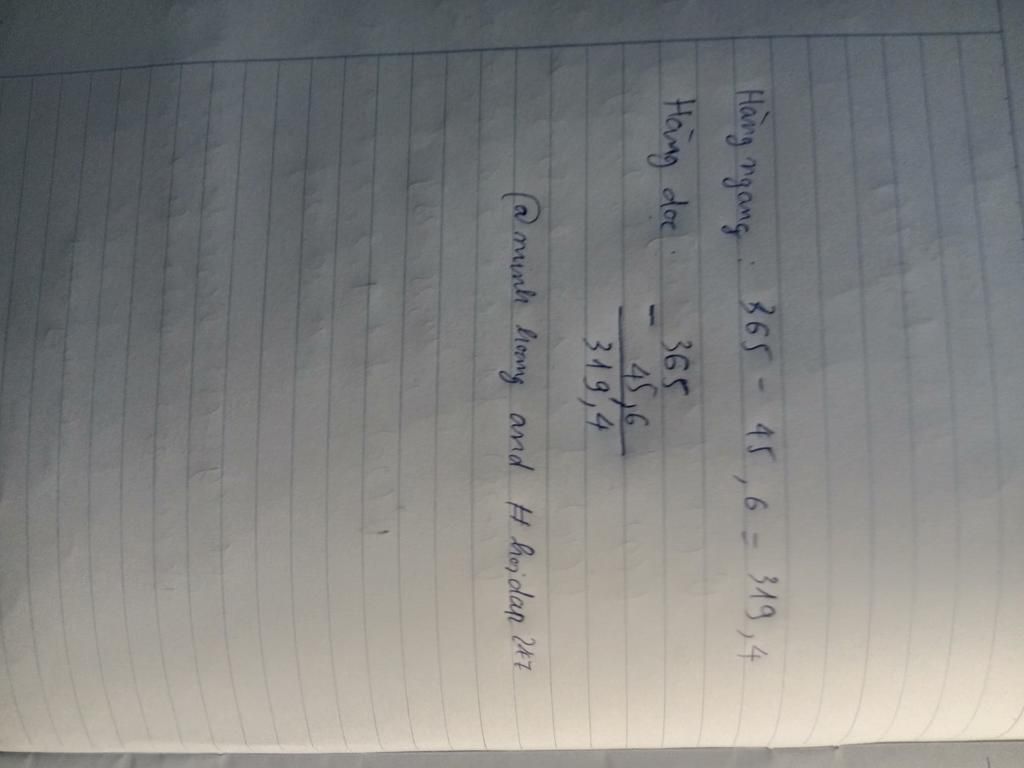 Hàng ngang : 365 - 45,6 = 319,4
Hàng dọc : 365
- 45,6
319,4
@minh hương and # hoidap 247